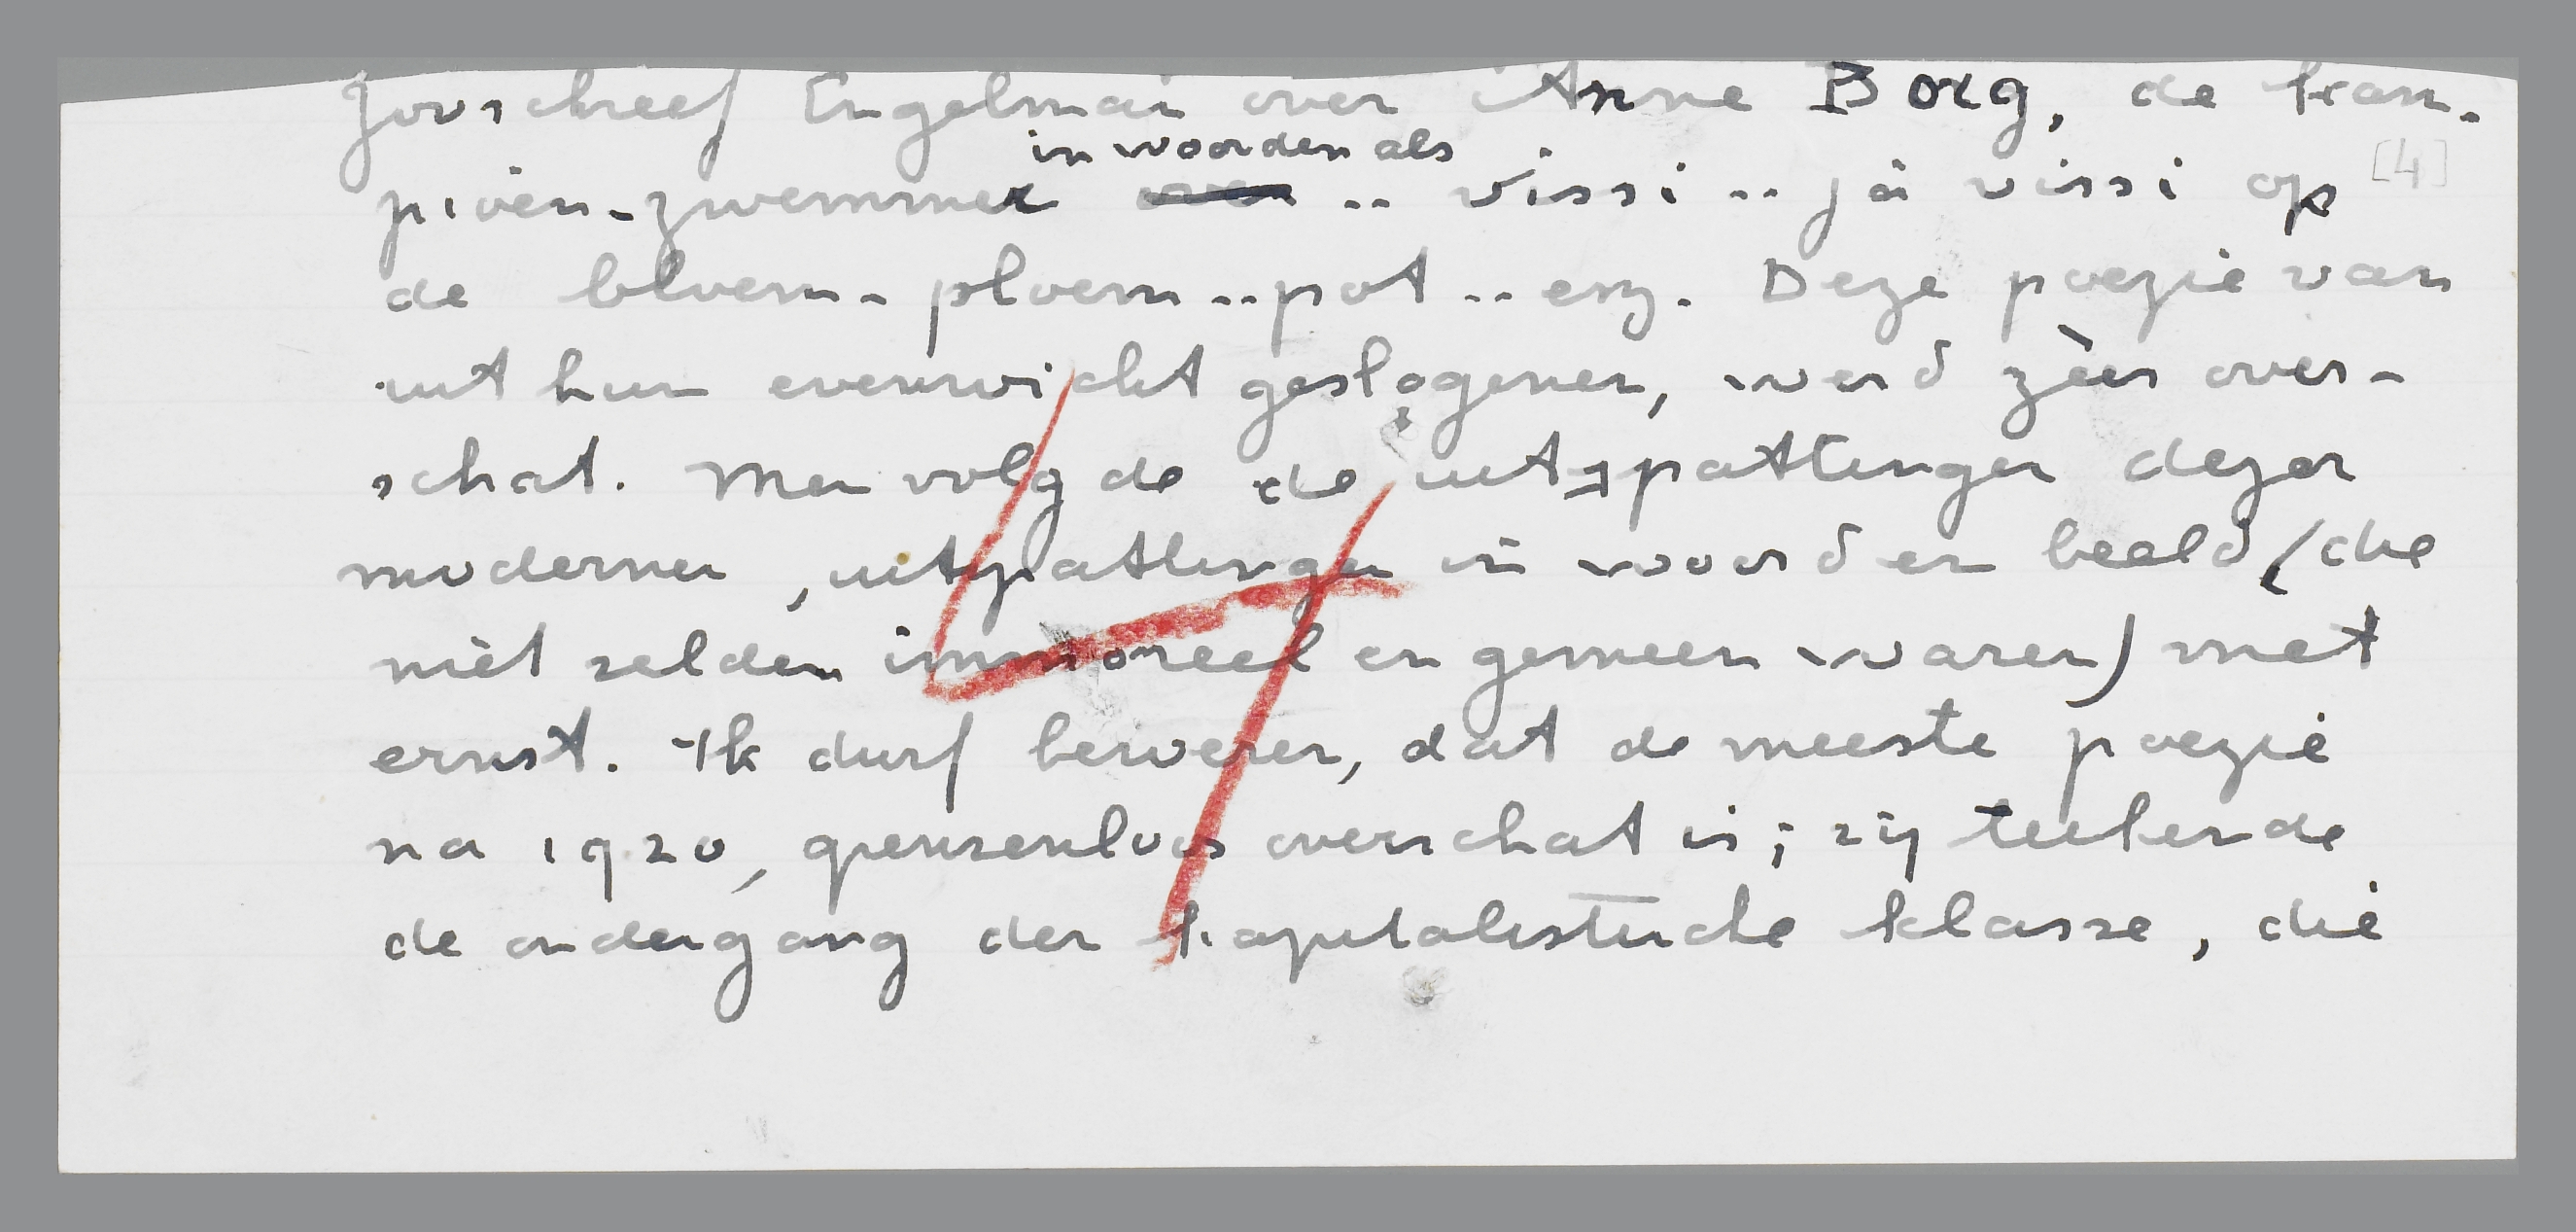 Zoo schreef Engelman over Arne Borg, de kam-
in woorden als
pioen-zwemmer .. vissi .. ja vissi op [4]
de bloem- ploem ..pot .. enz. Deze poezie van
uit hun evenwicht geslagenen, werd zéer over-
schat. Men volgde de uitspattingen dezer
modernen, uitspattingen in woord en beeld (die
niet zelden immoreel en gemeen waren) met
ernst. Ik durf beweren, dat de meeste poezie
na 1920, grenzenloos overschat is; zij teekende
de ondergang der kapitalistische klasse, die
4